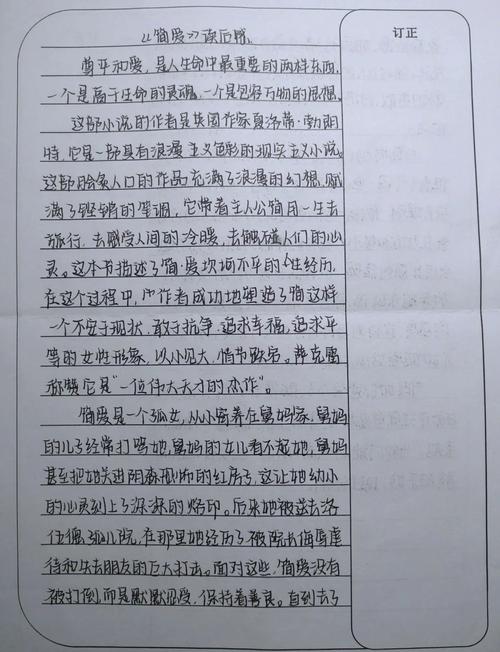 订正
《简爱》读后感
尊平和爱，是人生命中最重要的两样东西，
一个是高于生命的灵魂，一个是包容万物的思想。
这部小说的作者是英国作家夏洛蒂·勃朗
特，它是一部具有浪漫主义色彩的现实主义小说。
这部脍炙人口的作品充满了浪漫的幻想，赋
满了铿锵的笔调，它带着主人公简用一生去
旅行，去感受人间的冷暖，去触碰人们的心
灵。这本书描述了简·爱坎坷不平的人生经历，
在这个过程中，作者成功地塑造了简这样
一个不安于现状、敢于抗争、追求幸福，追求平
等的女性形象，以小见大，情节跌宕。萨克雷
称赞它是"一位伟大天才的杰作"。
简爱是一个孤女，从小寄养在舅妈家，舅妈
的儿子经常打骂她，舅妈的女儿看不起她，舅妈
甚至把她关进阴森恐怖的红房子，这让她幼小
的心灵刻上了深深的烙印。后来她被送去洛
伍德孤儿院，在那里她经历了被院长侮辱虐
待和失去朋友的巨大打击。面对这些，简爱没有
被打倒，而是默默忍受，保持着善良。直到去了